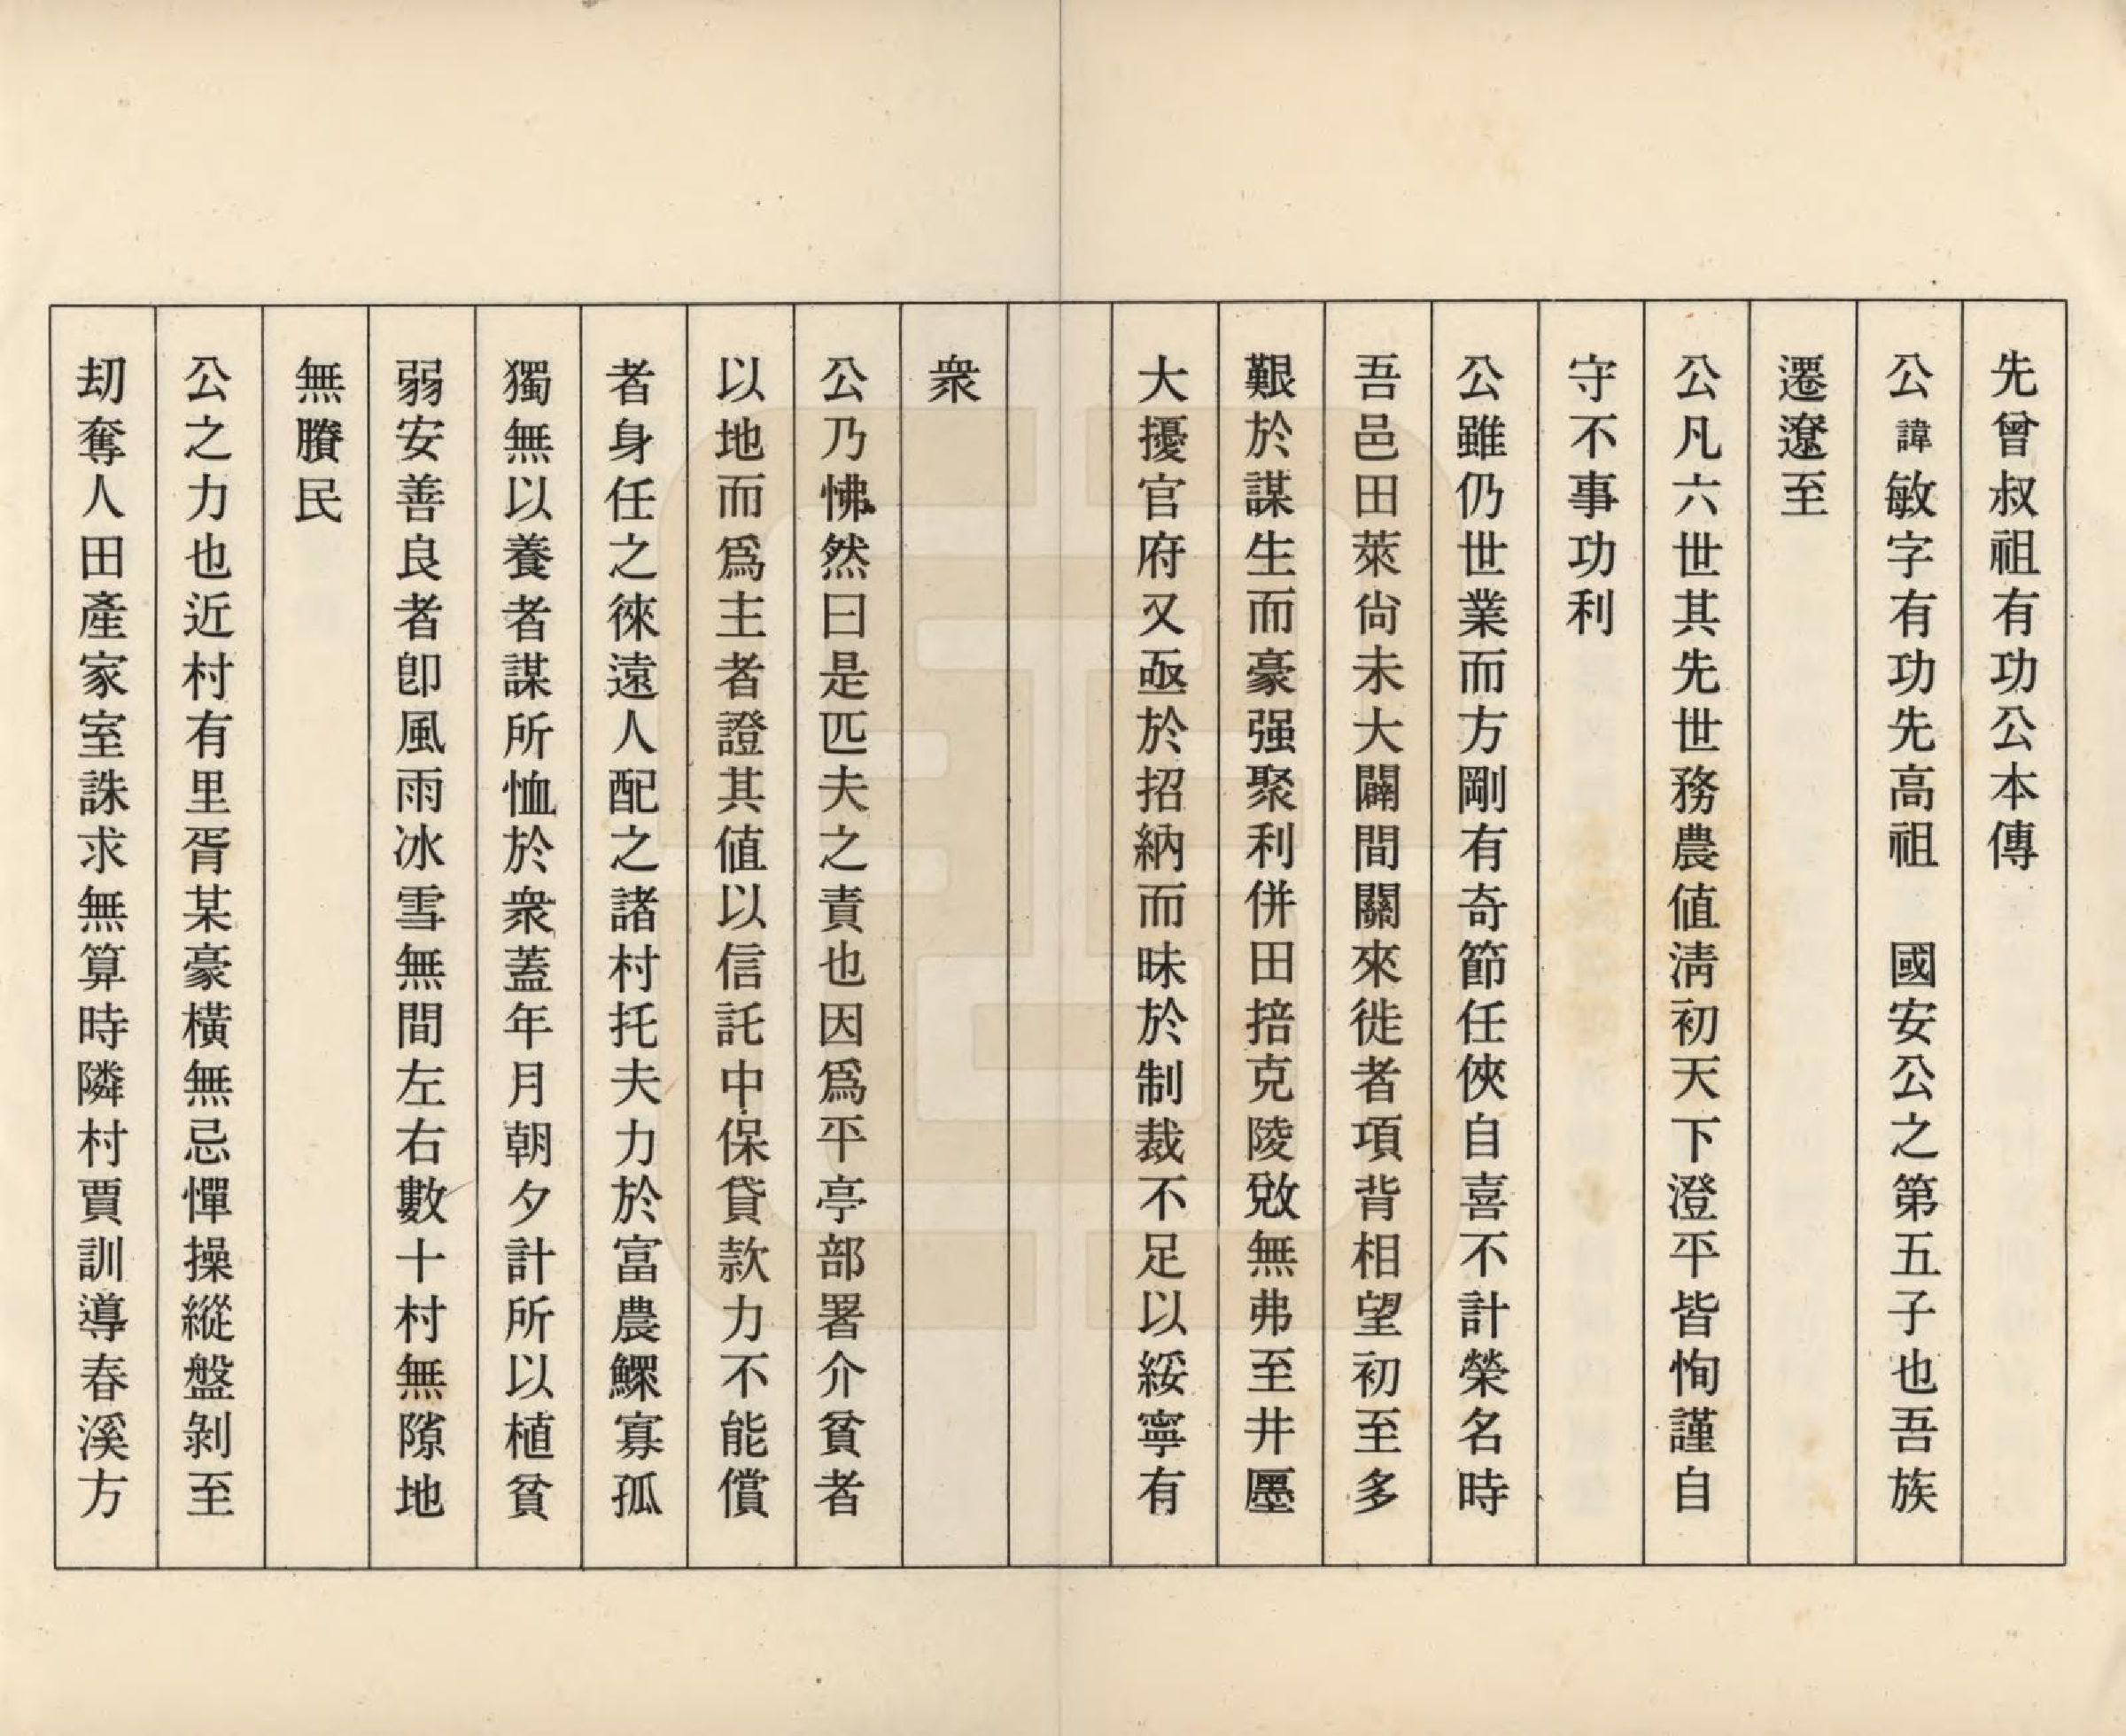 先曾叔祖有功公本傳
公諱敏字有功先高祖　國安公之第五子也吾族
遷遼至
公凡六世其先世務農值淸初天下澄平皆恂謹自
守不事功利
公雖仍世業而方剛有奇節任俠自喜不計榮名時
吾邑田萊尙未大闢間關來徙者項背相望初至多
艱於謀生而豪强聚利併田掊克陵敓無弗至井堙
大擾官府又亟於招納而昧於制裁不足以綏寧有
衆
公乃怫然曰是匹夫之責也因爲平亭部署介貧者
以地而爲主者證其値以信託中保貸款力不能償
者身任之徠遠人配之諸村托夫力於富農鰥寡孤
獨無以養者謀所恤於衆蓋年月朝夕計所以植貧
弱安善良者卽風雨冰雪無間左右數十村無隙地
無賸民
公之力也近村有里胥某豪橫無忌憚操縱盤剝至
刼奪人田產家室誅求無算時隣村賈訓導春溪方